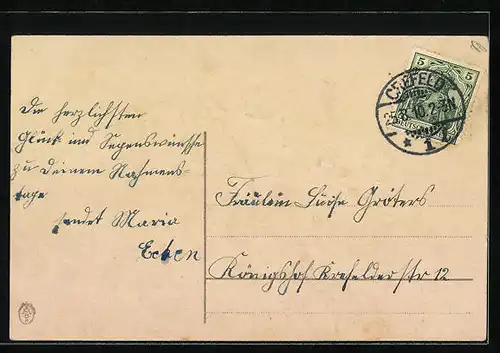 Die herzlichsten
Glück und Segenswünsche
zu Deinem Nahmens-
tage
sendet Maria
Fräulein Luise Gröters
Königshof Krefelderstr 12
CREFELD
5 5
1